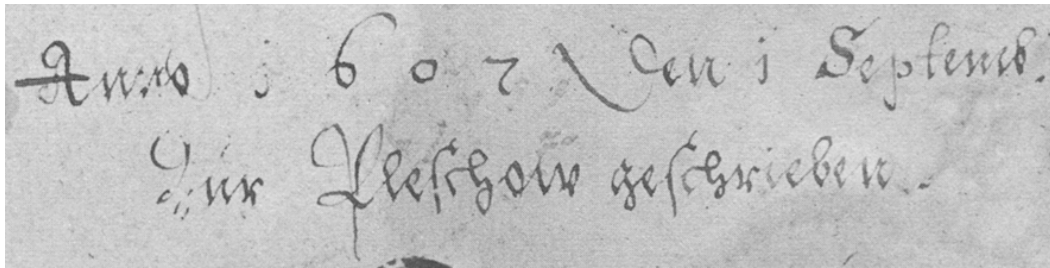 Anno 1 6 0 2 Den 1 Septemb.
Zur Pleschow geschrieben.